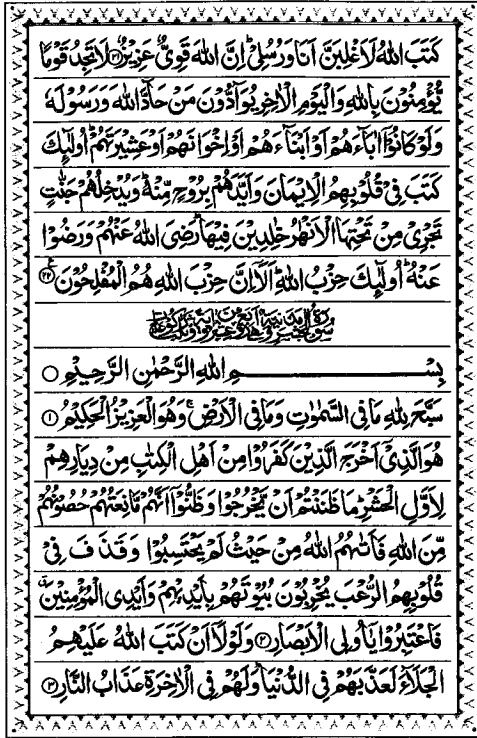 كَتَبَ اللهُ لَاَغْلِبَنَّ اَنَا وَرُسُلِيْ ؕ اِنَّ اللهَ قَوِيٌّ عَزِيْزٌ ﴿۲۱﴾ لَا تَجِدُ قَوْمًا
يُّؤْمِنُوْنَ بِاللهِ وَالْيَوْمِ الْاٰخِرِ يُوَآدُّوْنَ مَنْ حَآدَّ اللهَ وَرَسُوْلَهٗ
وَلَوْ كَانُوْۤا اٰبَآءَهُمْ اَوْ اَبْنَآءَهُمْ اَوْ اِخْوَانَهُمْ اَوْ عَشِيْرَتَهُمْ ؕ اُولٰٓئِكَ
كَتَبَ فِيْ قُلُوْبِهِمُ الْاِيْمَانَ وَاَيَّدَهُمْ بِرُوْحٍ مِّنْهُ ؕ وَيُدْخِلُهُمْ جَنّٰتٍ
تَجْرِيْ مِنْ تَحْتِهَا الْاَنْهٰرُ خٰلِدِيْنَ فِيْهَا ؕ رَضِيَ اللهُ عَنْهُمْ وَرَضُوْا
عَنْهُ ؕ اُولٰٓئِكَ حِزْبُ اللهِ ؕ اَلَاۤ اِنَّ حِزْبَ اللهِ هُمُ الْمُفْلِحُوْنَ ﴿۲۲﴾
بِسْمِ اللهِ الرَّحْمٰنِ الرَّحِيْمِ ○
سَبَّحَ لِلّٰهِ مَا فِي السَّمٰوٰتِ وَمَا فِي الْاَرْضِ ۚ وَهُوَ الْعَزِيْزُ الْحَكِيْمُ ﴿۱﴾
هُوَ الَّذِيْۤ اَخْرَجَ الَّذِيْنَ كَفَرُوْا مِنْ اَهْلِ الْكِتٰبِ مِنْ دِيَارِهِمْ
لِاَوَّلِ الْحَشْرِ ؕ مَا ظَنَنْتُمْ اَنْ يَّخْرُجُوْا وَظَنُّوْۤا اَنَّهُمْ مَّانِعَتُهُمْ حُصُوْنُهُمْ
مِّنَ اللهِ فَاَتٰىهُمُ اللهُ مِنْ حَيْثُ لَمْ يَحْتَسِبُوْا وَقَذَفَ فِيْ
قُلُوْبِهِمُ الرُّعْبَ يُخْرِبُوْنَ بُيُوْتَهُمْ بِاَيْدِيْهِمْ وَاَيْدِي الْمُؤْمِنِيْنَ ۗ
فَاعْتَبِرُوْا يٰۤاُولِي الْاَبْصَارِ ﴿۲﴾ وَلَوْلَاۤ اَنْ كَتَبَ اللهُ عَلَيْهِمُ
الْجَلَآءَ لَعَذَّبَهُمْ فِي الدُّنْيَا ؕ وَلَهُمْ فِي الْاٰخِرَةِ عَذَابُ النَّارِ ﴿۳﴾